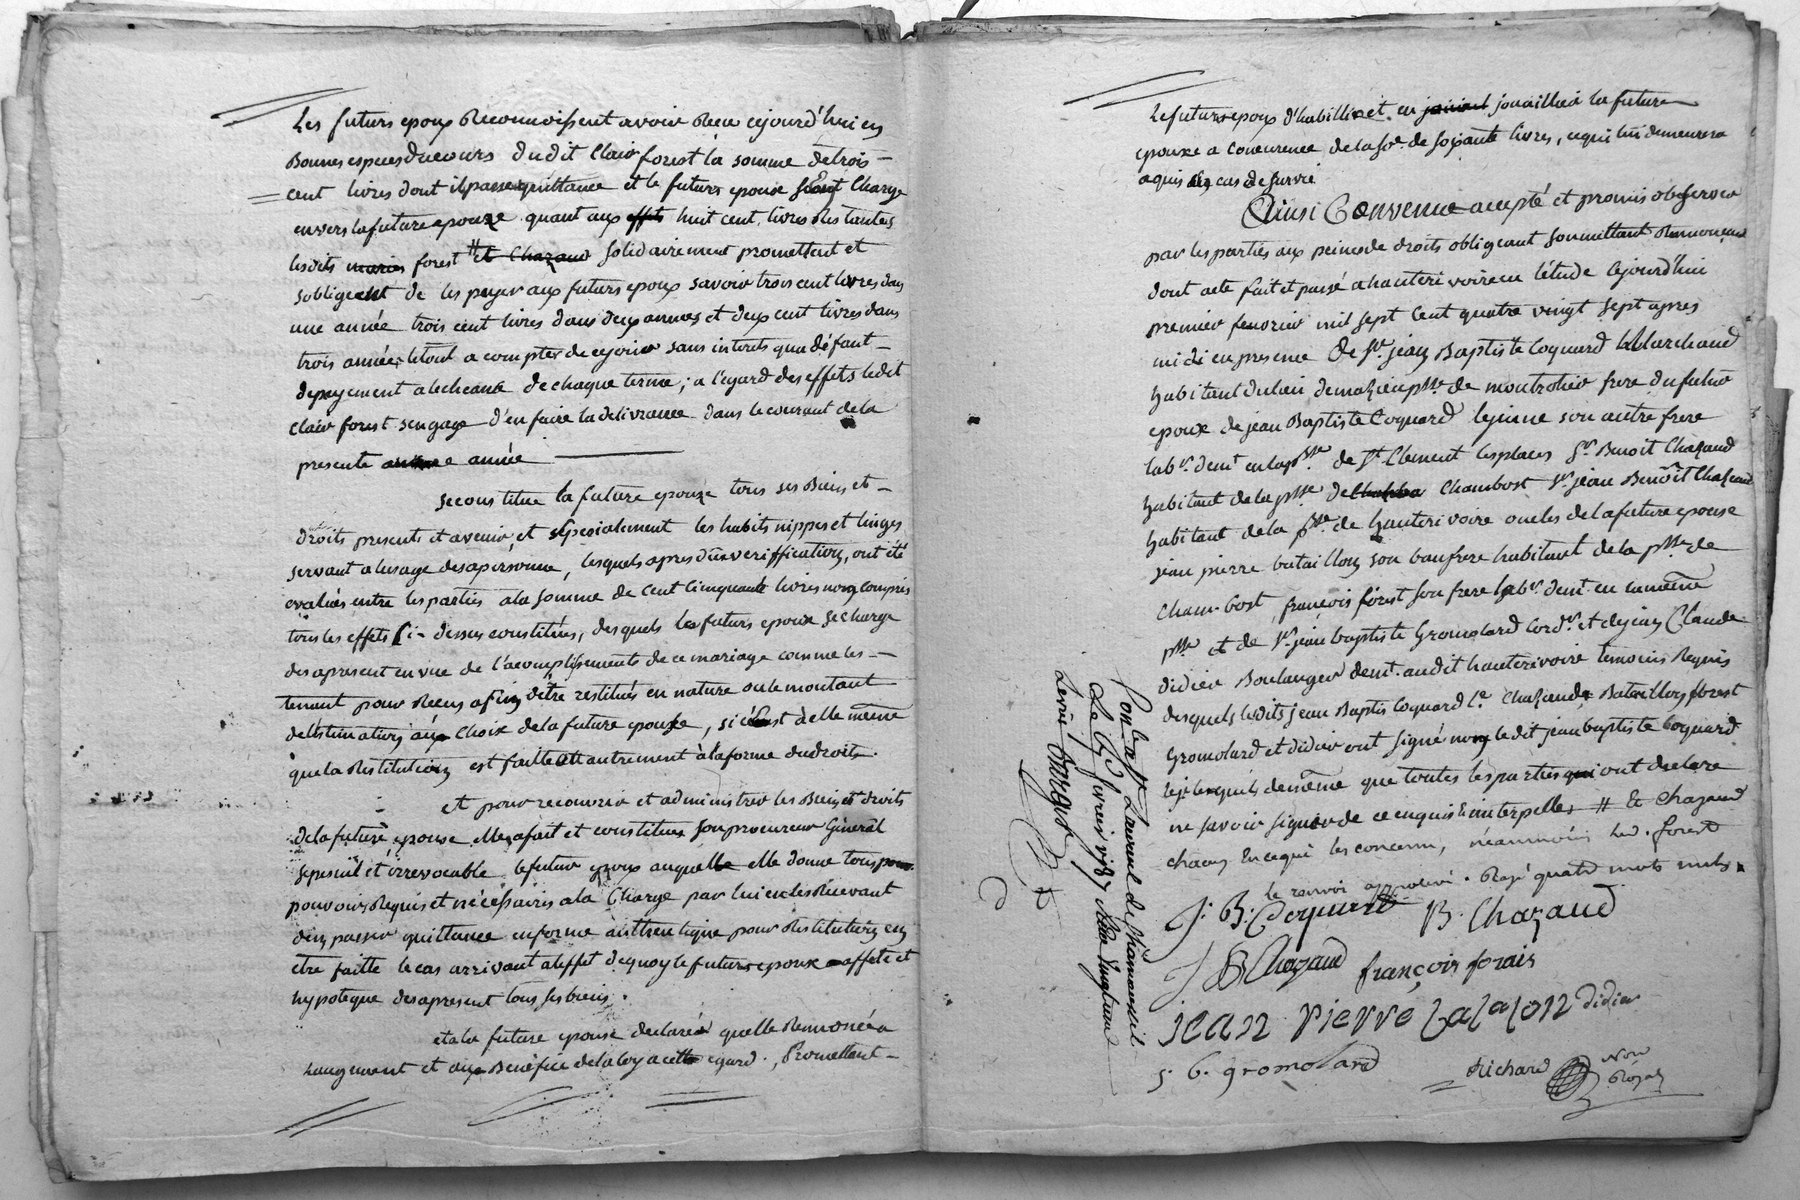 Les futurs epoux Reconnoissent avoir Recu cejourd'hui en
Bonnes especes ducours dudit Clair forest la somme de trois
cent livres dont il passe quittance et le futur epoux Charge
envers la future epouze quant aux effets huit cent livres Restantes
lesdits maries forest # et Chazaud solidairement promettent et
sobligent de les payer aux futurs epoux savoir trois cent livres dans
une année trois cent livres dans deux annees et deux cent livres dans
trois années letout a compter de cejour sans interets qua défaut
depayement alecheance de chaque terme; a l'egard des effets ledit
Clair forest s'engage d'en faire la delivrance dans le courant de la
presente année
se constitue la future epouze tous ses Biens et
droits presents et avenir, et spesialement les habits nippes et linges
servant alusage desapersonne, lesquels apres düe veriffication, ont été
evalués entre les parties ala somme de Cent Cinquante livres non compris
tous les effets ci-dessus constitués, desquels les futurs epoux secharge
des apresent en vue de l'acomplissements de ce mariage comme les
tenant pour Recus afin dêtre restitués en nature ou le montant
delestimation aux Choix de la future epouse, si c'est à elle même
que la Restitution est faitte autrement à la forme du droits.
et pour recouvrir et administrer les Biens et droits
de la future epouse, elle a fait et constitue son procureur Général
spesial et irrevocable le futur epoux auquelle elle donne tous
pouvoirs Requis et nécéssaires a la Charge par lui en les Recevant
den passer quittance en forme authentique pour Restitution en
etre faitte le cas arrivant aleffet dequoy le futur epoux affecte et
hypoteque desapresent tous ses biens.
et la future epouse declaré quelle Renonce a
et aux Benéfice de la loy a cette egard. Promettant
Le futurs epoux d'habiller et en jouailler la future
epouse a concurence de la so.e de soixante livres, ce qui lui demeurera
aquis en cas de survie
Ainsi Convenue accepté et promis observer
par les parties aux peines de droits obligeant soumettant Renonceant
dont acte fait et passé a hauterivoire en l'étude cejourd'hui
premier fevrier mil sept cent quatre vingt sept apres
midi en presence De Sr. jean Baptiste Coquard Marchand
habitant du lieu de mazieu psse de montrotier frere du futur
epoux de jean Baptiste Coquard lejeune son autre frere
labr. demt en la psse de St Clement les places Sr. Benoit Chazaud
habitant de la psse de Chambost Sr. jean Benoît Chazaud
habitant de la psse de hauterivoire oncles de la future epouse
jean pierre bataillon son baufrere habitant de la psse de
Chambost, françois forest son frere labr. demt. en la même
psse et de Sr. jean baptiste Gromolard cordr. et de jean Claude
didier Boulanger demt. audit hauterivoire temoins Requis
desquels lesdits jean Baptis Coquard l'e. Chazaud, Bataillon forest
Gromolard et didier ont signé non ledit jean baptiste Coquard
lejeune de même que toutes les parties qui ont declare
ne savoir signer de ce enquis & interpelles # Et Chazaud
chacun En cequi les concerne, néanmoins led. forest
le renvoi approuvé. Rayé quatre mots nuls.
J. B. Coquard B. Chazaud
J B Chazaud françois forais
jean pierre batalon didier
j. b. gromolard Richard Nore Royal
Con.lé a St Laurent de Chamousset
Le 13 fevrier 1787